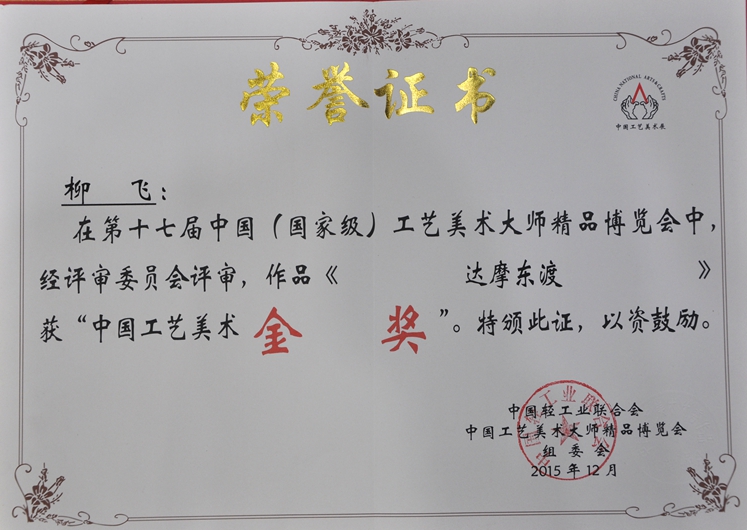 荣誉证书
CHINA NATIONAL ARTS&CRAFTS
中国工艺美术展
柳 飞：
在第十七届中国（国家级）工艺美术大师精品博览会中，
经评审委员会评审，作品《 达摩东渡 》
获“中国工艺美术 金 奖”。特颁此证，以资鼓励。
中国轻工业联合会
中国工艺美术大师精品博览会
组 委 会
2015年12月
中国轻工业联合会